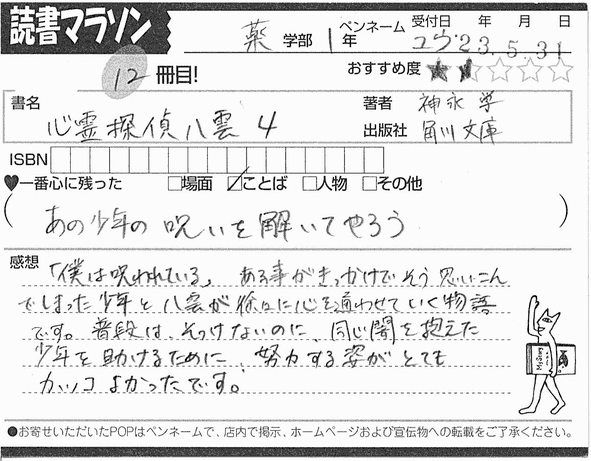 読書マラソン
薬 学部 1年
ペンネーム ユウ
受付日 年 月 日
'23.5.31
12 冊目!
おすすめ度 ★★☆☆☆
書名 心霊探偵八雲 4
著者 神永 学
出版社 角川文庫
ISBN
♥一番心に残った □場面 ☑ことば □人物 □その他
(あの少年の呪いを解いてやろう)
感想 「僕は呪われている」 ある事がきっかけでそう思いこん
でしまった少年と八雲が徐々に心を通わせていく物語
です。普段は、そっけないのに、同じ闇を抱えた
少年を助けるために、努力する姿がとても
カッコよかったです。
●お寄せいただいたPOPはペンネームで、店内で掲示、ホームページおよび宣伝物への転載をご了承ください。